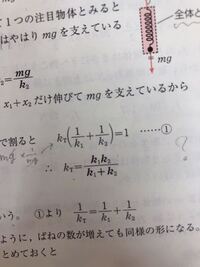 て1つの注目物体とみると
はやはり mg を支えている
全体と
mg
₂=mg/k₂
x₁+x₂ だけ伸びて mg を支えているから
で割ると k_T(1/k₁+1/k₂)=1 ……①
mg × 1/mg
?
∴ k_T=k₁k₂/(k₁+k₂)
いう。 ①より 1/k_T=1/k₁+1/k₂
ように，ばねの数が増えても同様の形になる。
とめておくと